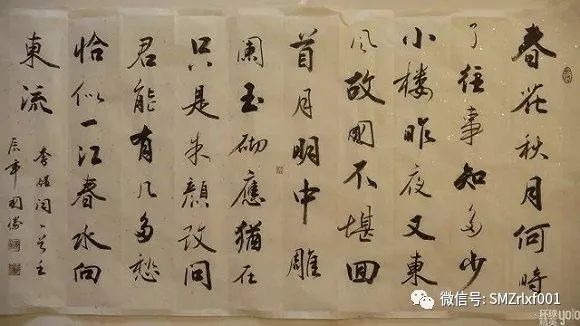 春花秋月何時
了往事知多少
小楼昨夜又東
風故国不堪回
首月明中雕
闌玉砌應猶在
只是朱顔改問
君能有几多愁
恰似一江春水向
東流
李煜詞一首壬
辰年
微信号: SMZrlxf001
yolo